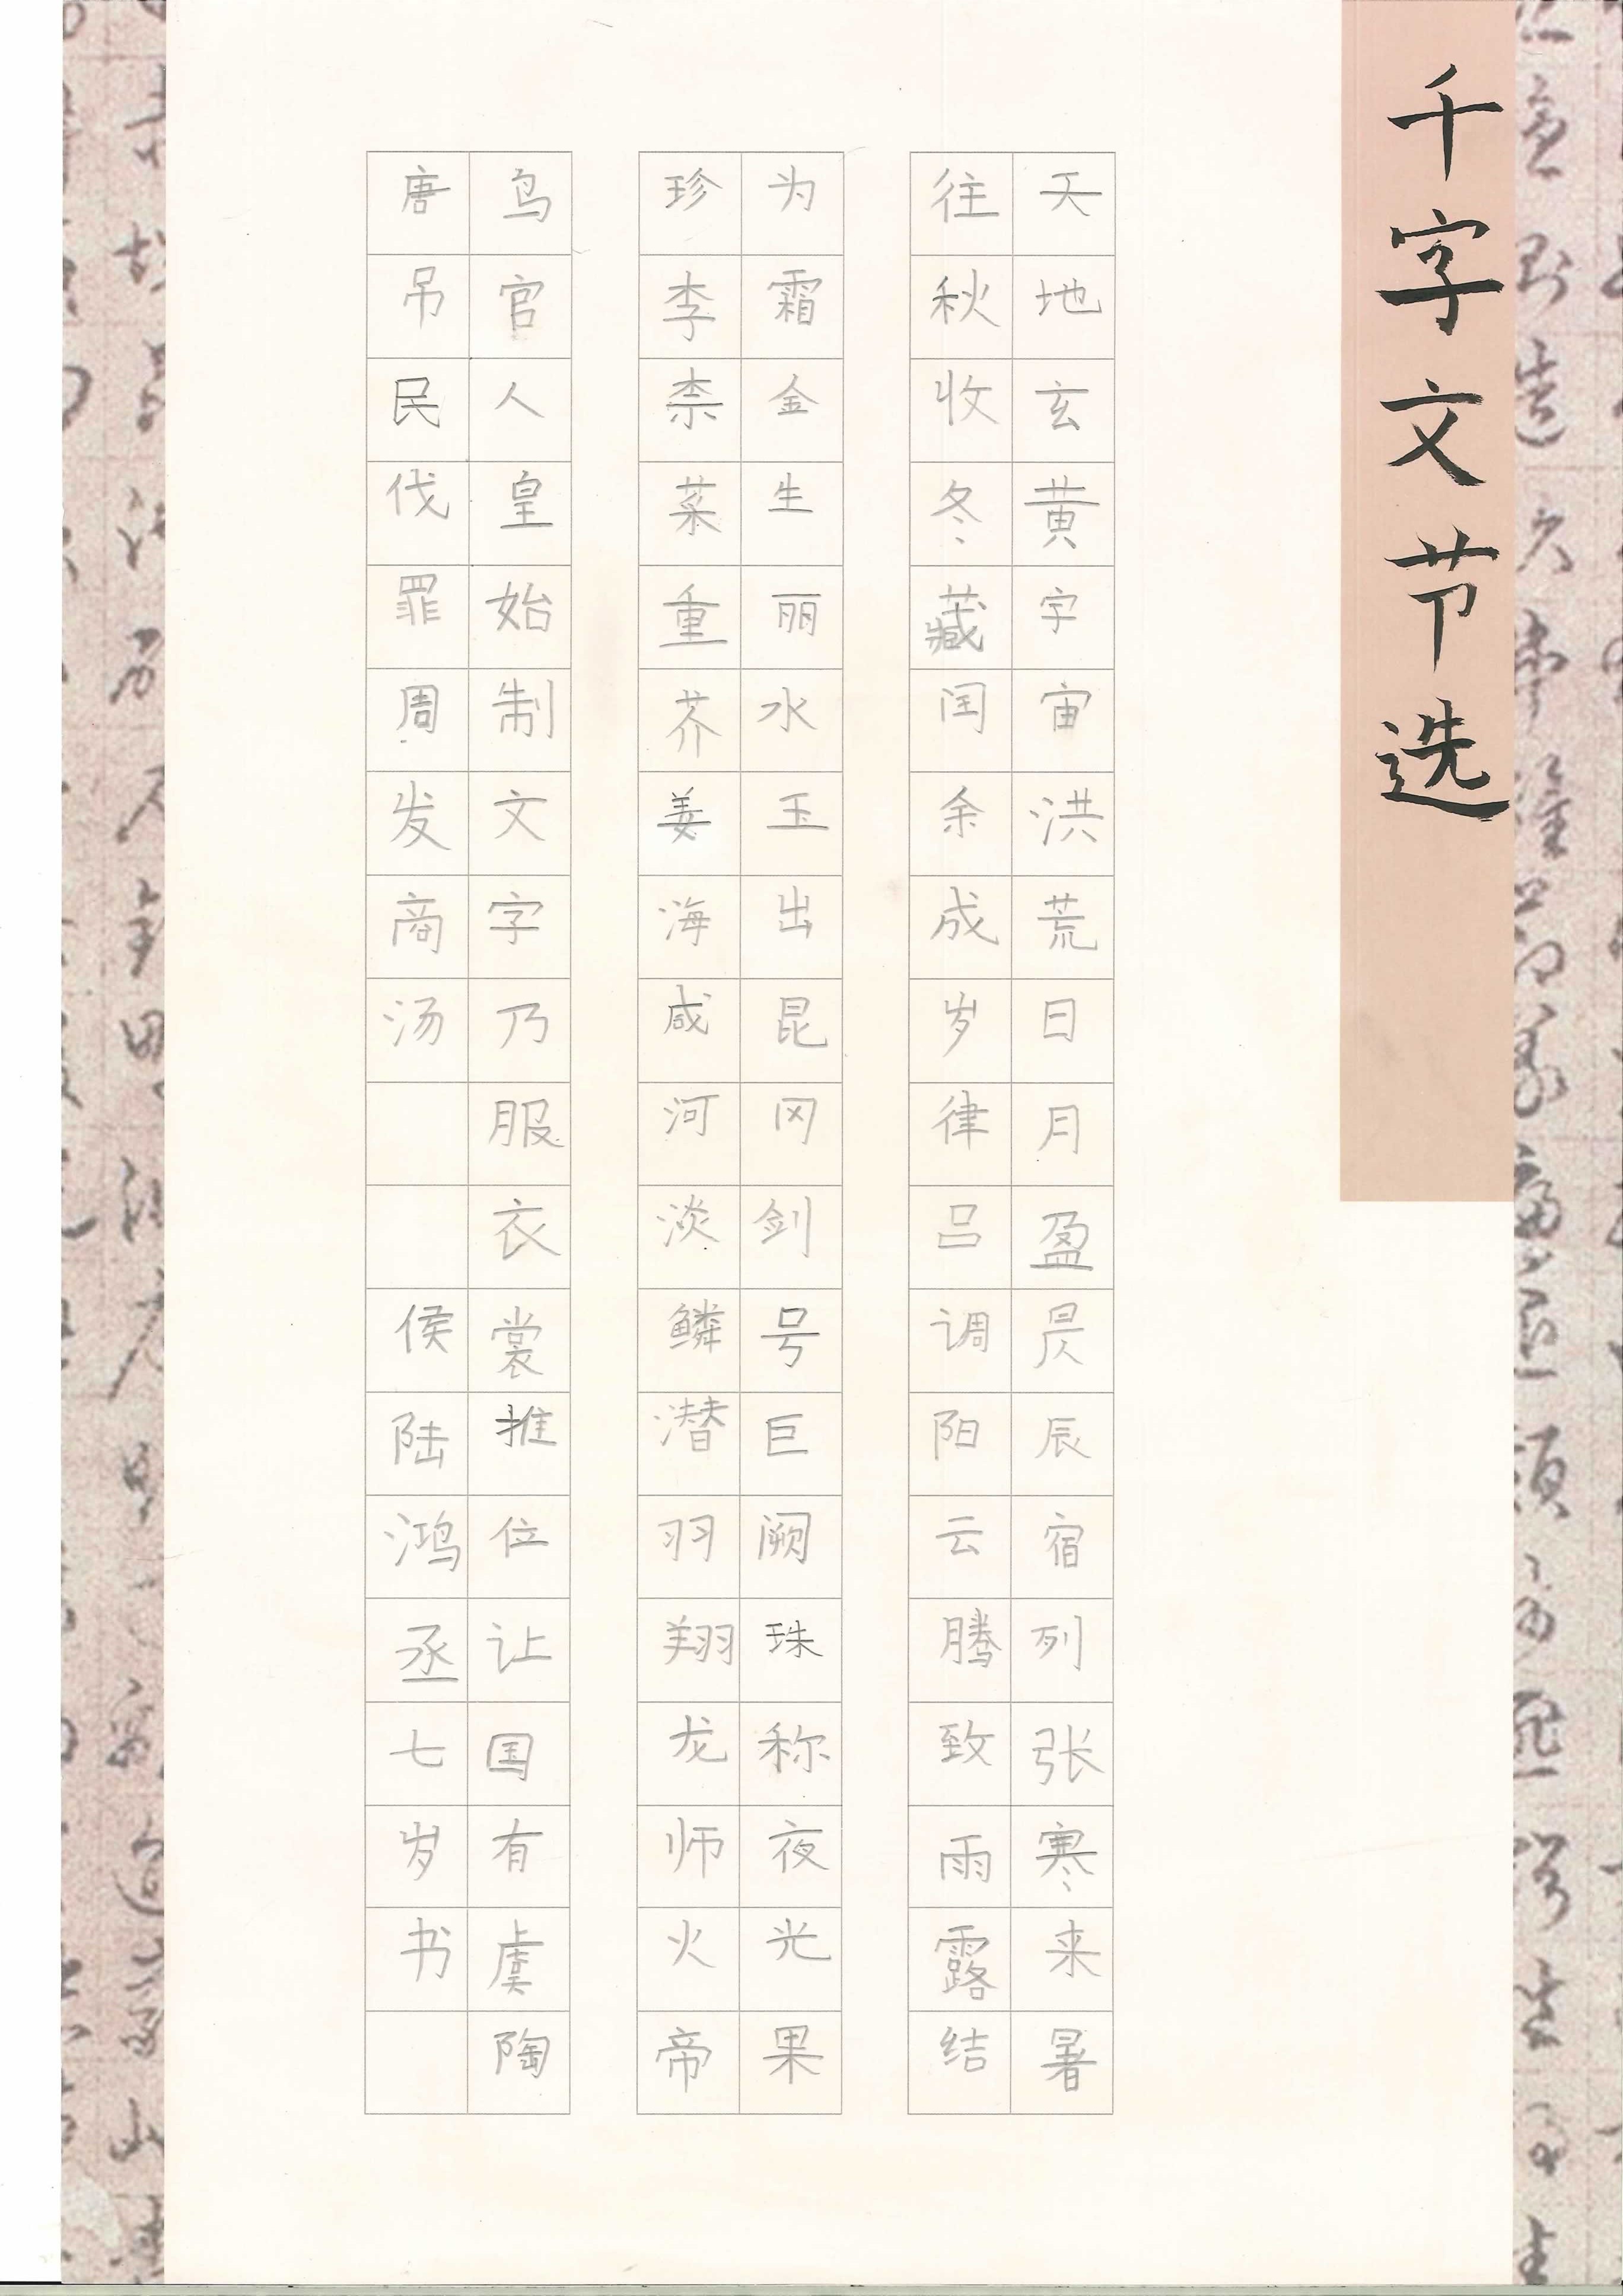 千字文节选
天地玄黄宇宙洪荒日月盈昃辰宿列张寒来暑
往秋收冬藏闰余成岁律吕调阳云腾致雨露结
为霜金生丽水玉出昆冈剑号巨阙珠称夜光果
珍李柰菜重芥姜海咸河淡鳞潜羽翔龙师火帝
鸟官人皇始制文字乃服衣裳推位让国有虞陶
唐吊民伐罪周发商汤
侯陆鸿丞七岁书